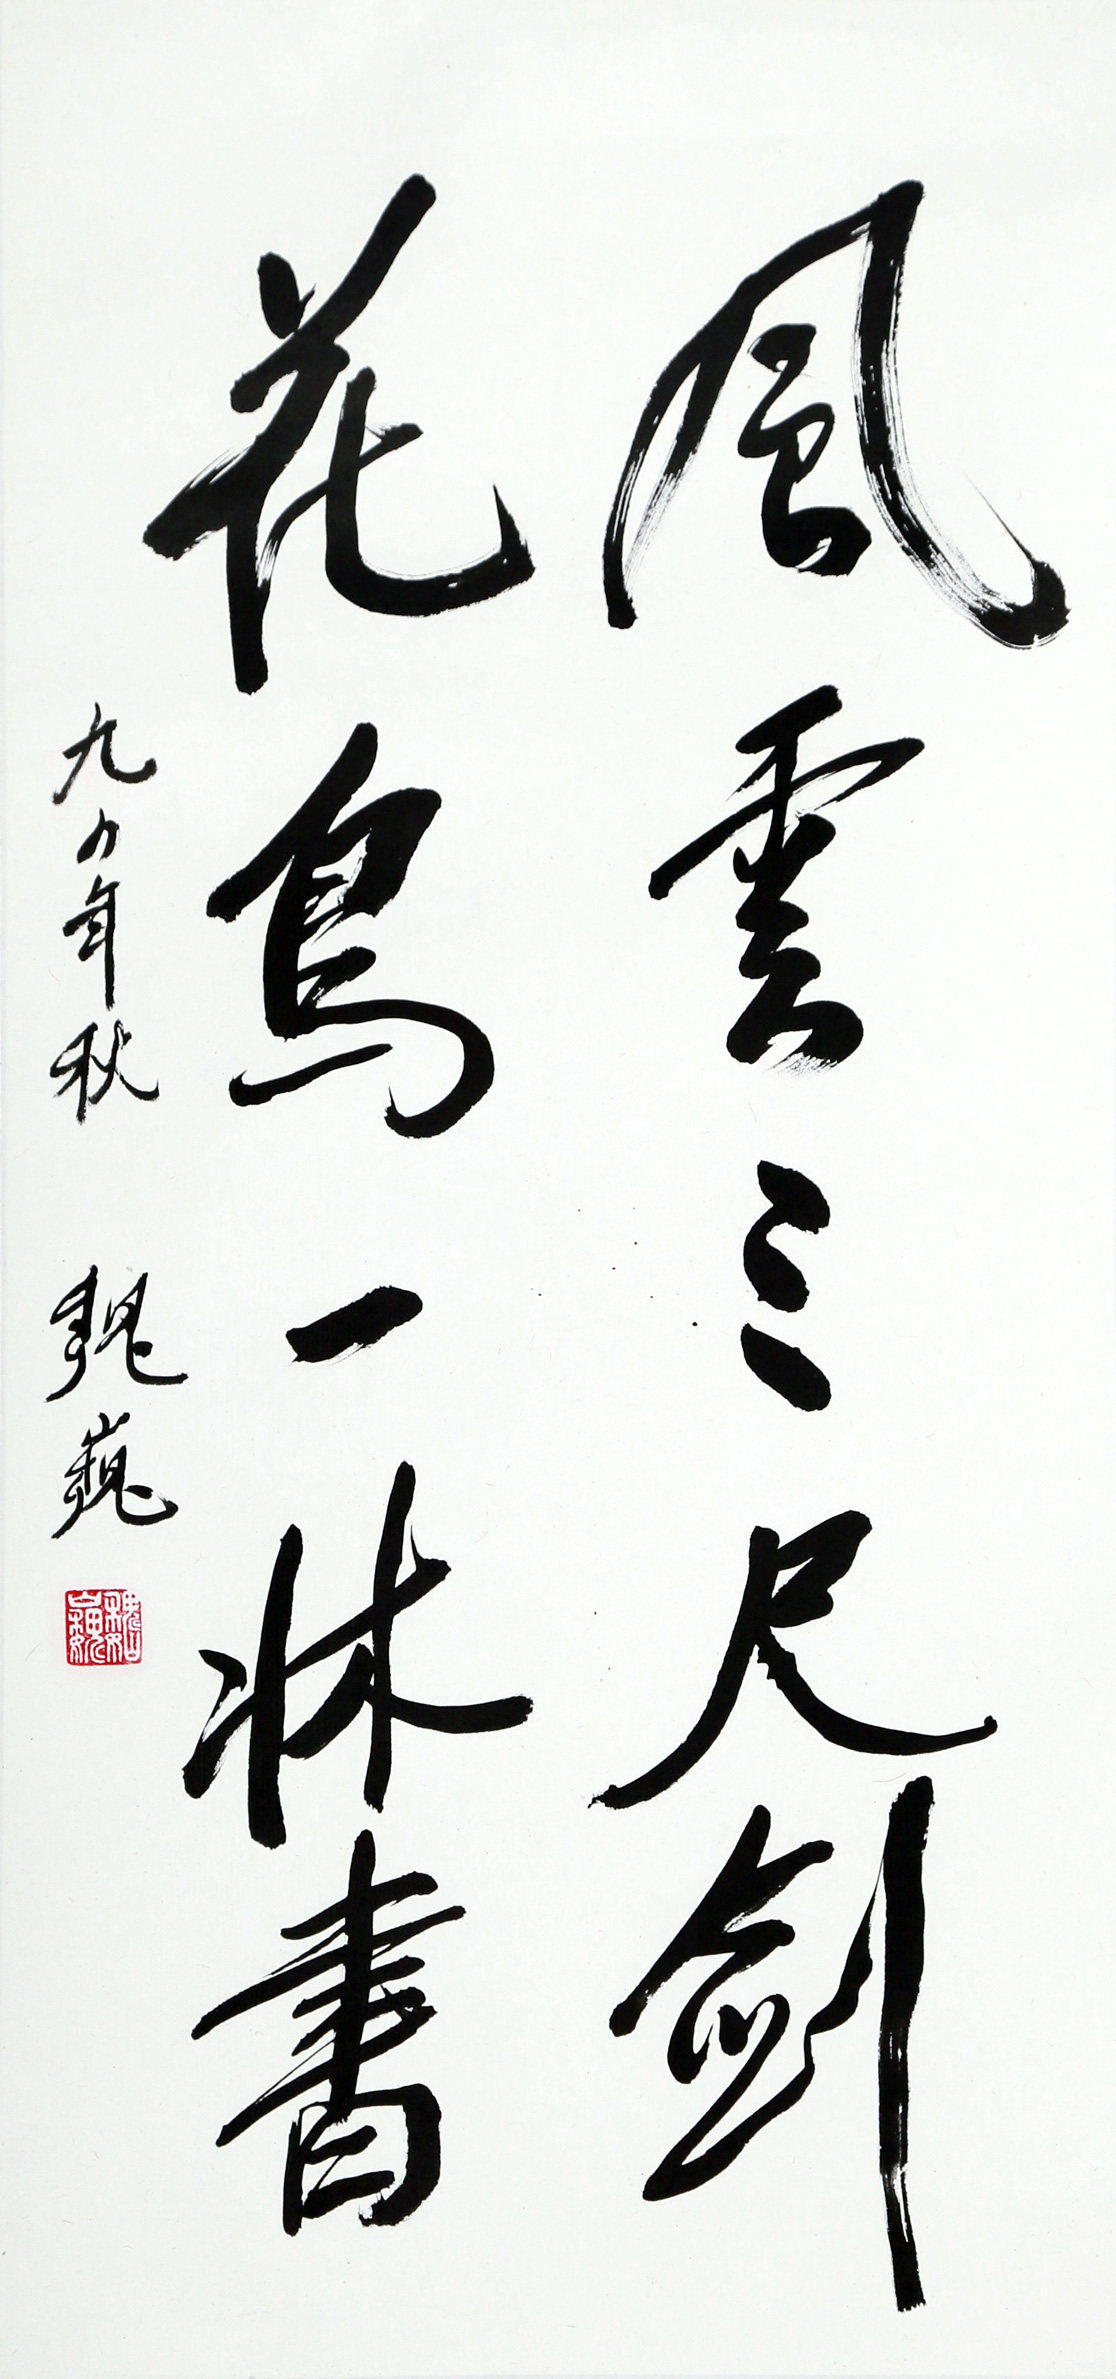 風雲三尺劍
花鳥一牀書
九〇年秋 魏巍
魏巍